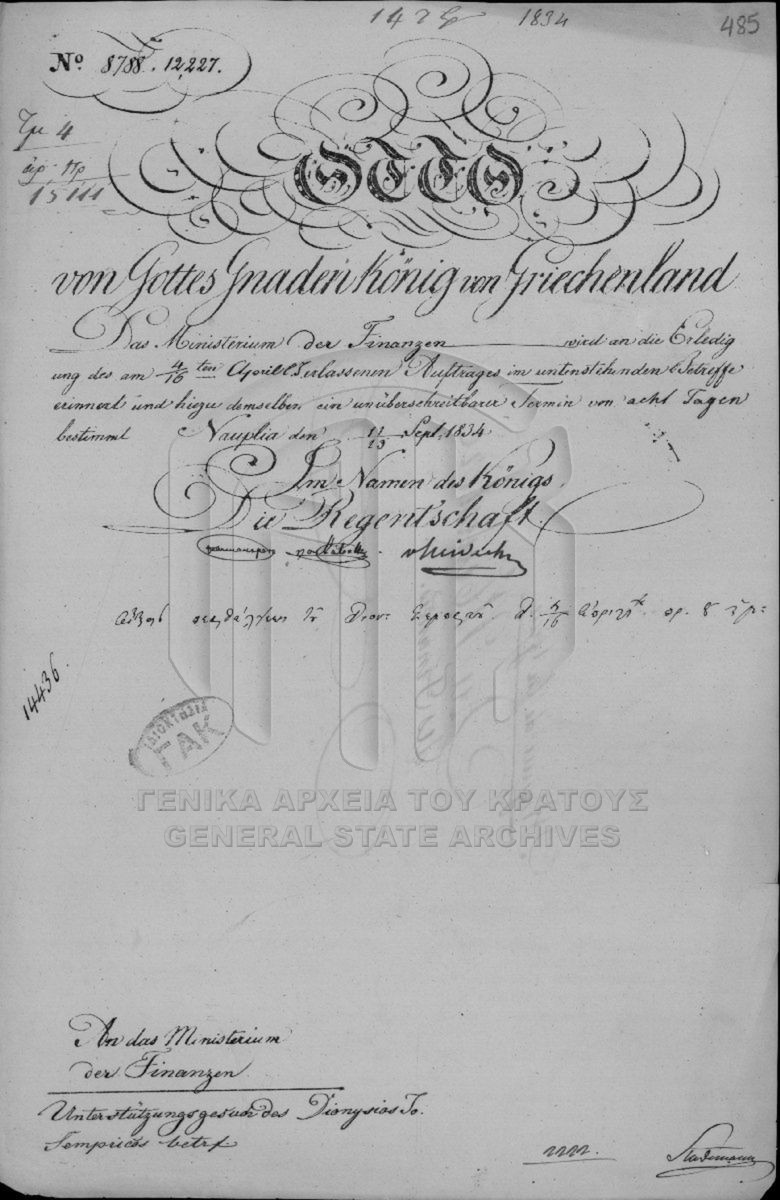 1834
485
No. 8788. 12,227.
4
OTTO
von Gottes Gnaden König von Griechenland
Das Ministerium der Finanzen wird an die Erledig
ung des am 4/16 ten April l. J. erlassenen Auftrages im untenstehenden Betreffe
erinnert und hiezu demselben ein unüberschreitbarer Termin von acht Tagen
bestimmt Nauplia den 11/23 Sept. 1834
Im Namen des Königs
Die Regentschaft
14436.
ΓΑΚ
ΓΕΝΙΚΑ ΑΡΧΕΙΑ ΤΟΥ ΚΡΑΤΟΥΣ
GENERAL STATE ARCHIVES
An das Ministerium
der Finanzen
Unterstützungsgesuch des Dionysios To.
Sempricos betrf
Stademann